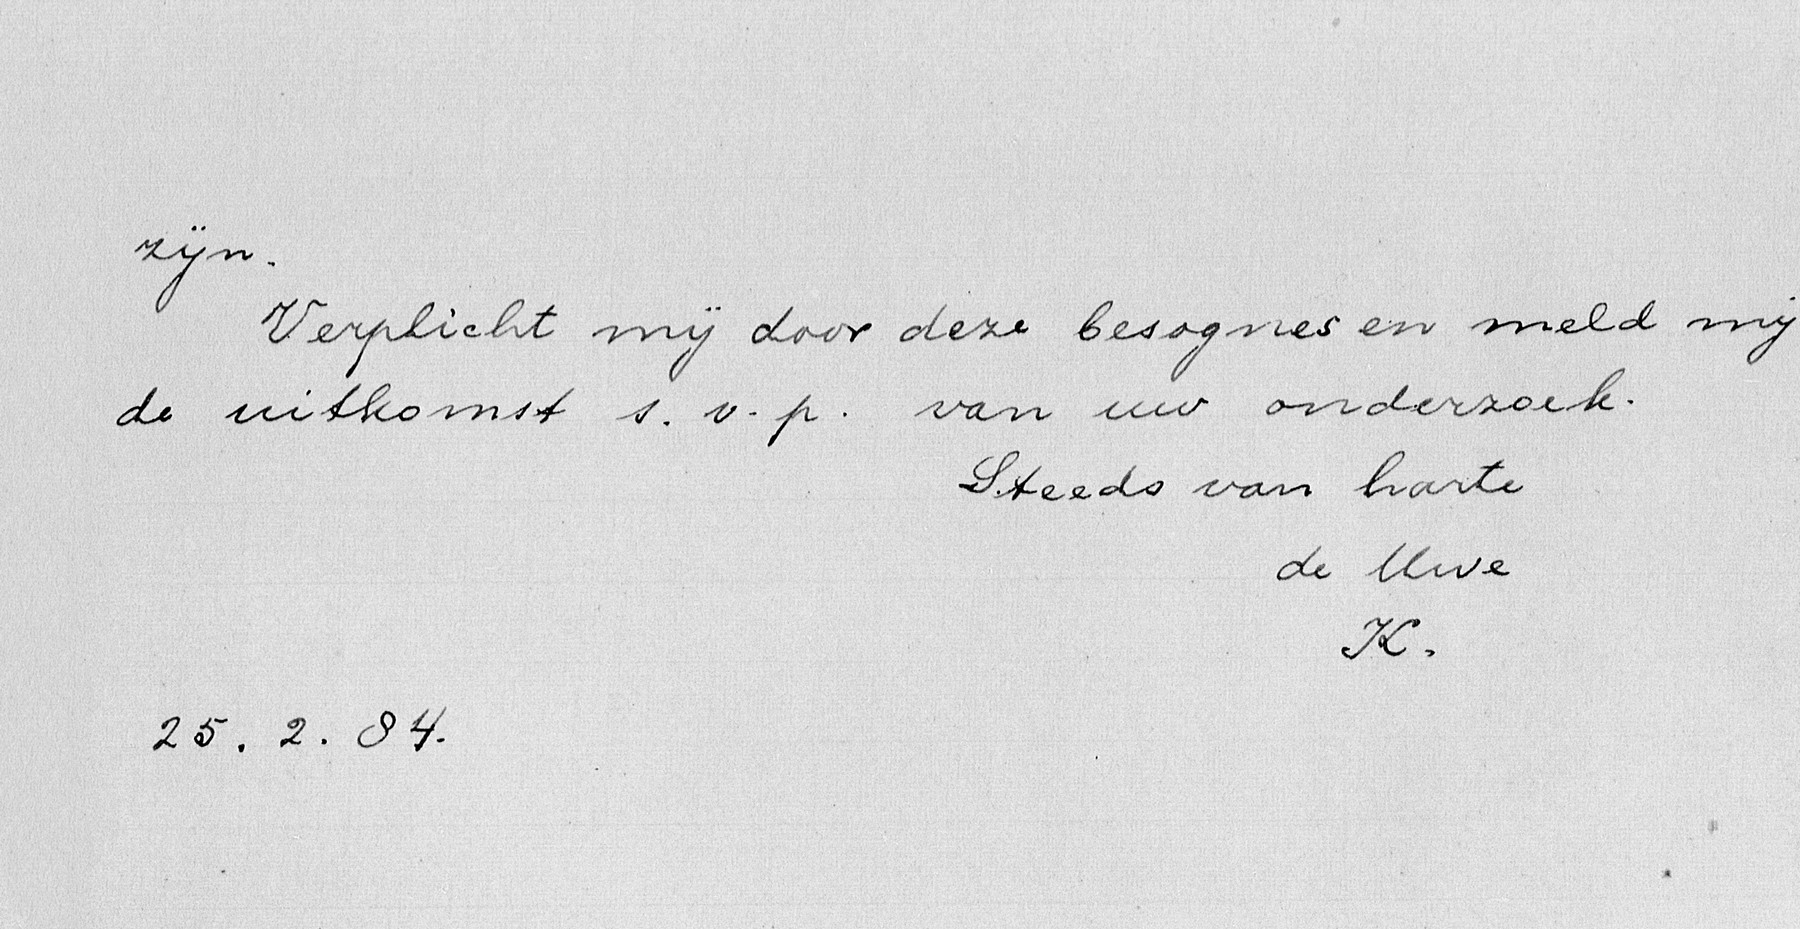 zijn.
Verplicht mij door deze besognes en meld mij
de uitkomst s.v.p. van uw onderzoek.
Steeds van harte
de Uwe
K.
25.2.84.